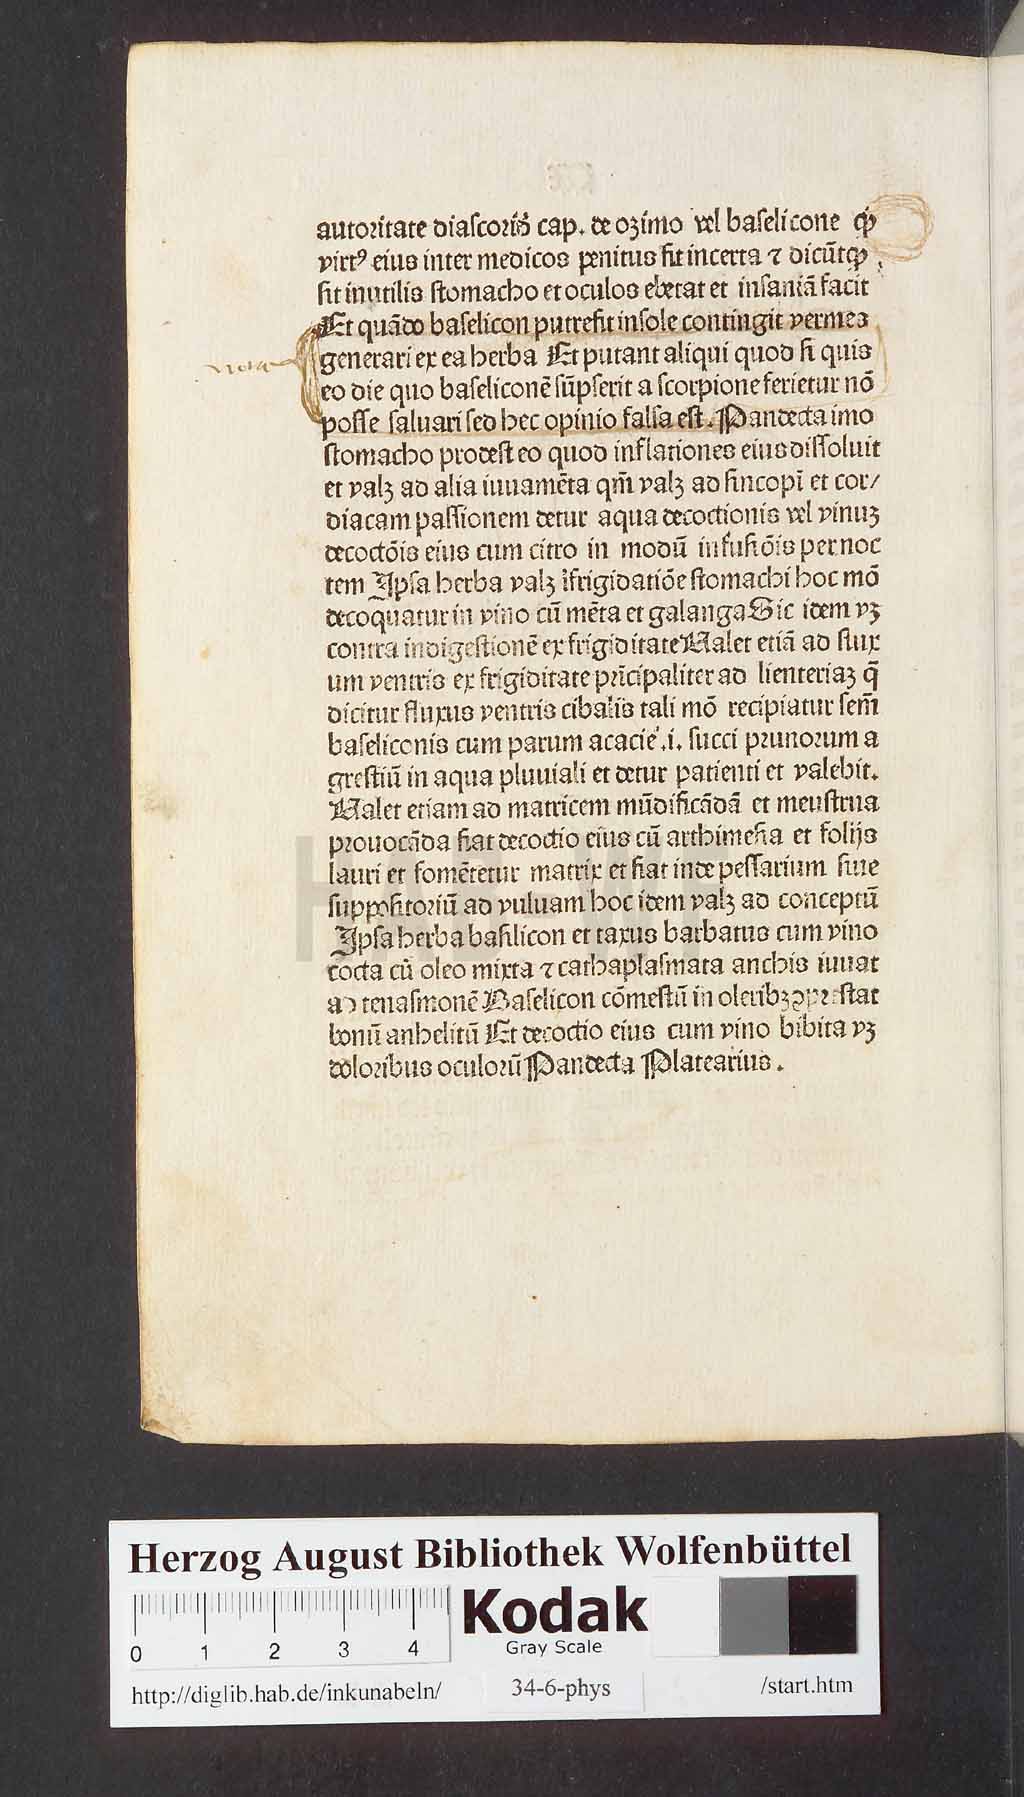 autoritate diascoridis cap. de ozimo vel baselicone qp̄
virtꝰ eius inter medicos penitus sit incerta ⁊ dicūt qp̄
sit inutilis stomacho et oculos ebetat et insaniā facit
Et quādo baselicon putrefit in sole contingit vermes
nota
generari ex ea herba Et putant aliqui quod si quis
eo die quo baseliconē sūpserit a scorpione ferietur nō
posse saluari sed hec opinio falsa est. Pandecta imo
stomacho prodest eo quod inflationes eius dissoluit
et valꝫ ad alia iuuamēta qm̄ valꝫ ad sincopī et cor/
diacam passionem detur aqua decoctionis vel vinuꝫ
decoctōis eius cum citro in modū infusiōis per noc
tem Ipsa herba valꝫ īfrigidatiōe stomachi hoc mō
decoquatur in vino cū mēta et galanga Sic idem vꝫ
contra indigestionē ex frigiditate Ualet etiā ad flux
um ventris ex frigiditate prīcipaliter ad lienteriaꝫ q̄
dicitur fluxus ventris cibalis tali mō recipiatur sem̄
baseliconis cum parum acacie .i. succi prunorum a
grestiū in aqua pluuiali et detur patienti et valebit.
Ualet etiam ad matricem mūdificādā et menstrua
prouocāda fiat decoctio eius cū arthimesia et folijs
lauri et fomētetur matrix et fiat inde pessarium siue
suppositoriū ad vuluam hoc idem valꝫ ad conceptū
Ipsa herba basilicon et taxus barbatus cum vino
cocta cū oleo mixta ⁊ cathaplasmata anchis iuuat
ad tenasmonē Baselicon cōmestū in oleribꝫ prestat
bonū anhelitū Et decoctio eius cum vino bibita vꝫ
doloribus oculorū Pandecta Platearius.
HAB
Herzog August Bibliothek Wolfenbüttel
0 1 2 3 4
Kodak
Gray Scale
http://diglib.hab.de/inkunabeln/ 34-6-phys /start.htm